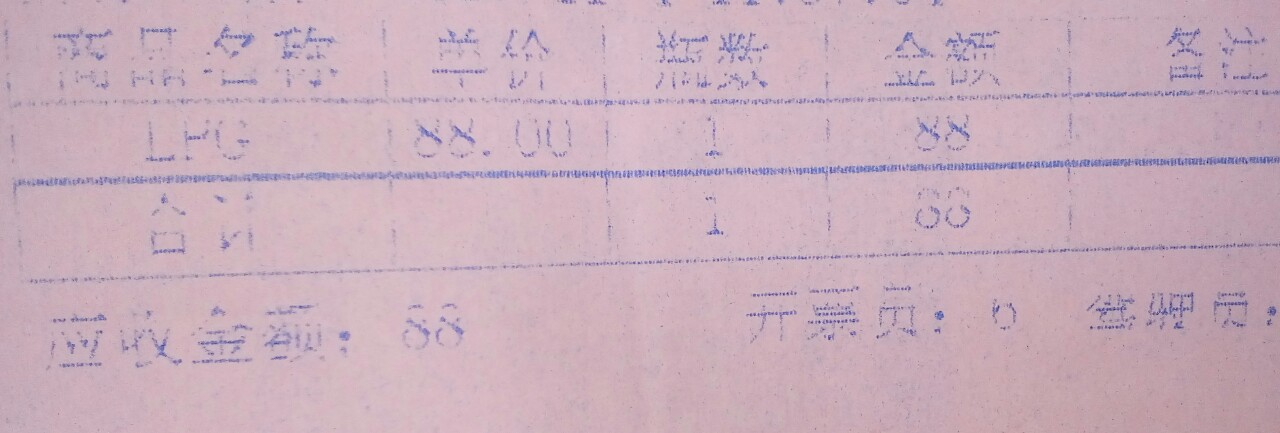 商品名称 单价 瓶数 金额 备注
LPG 88.00 1 88
合计 1 88
应收金额：88 开票员： 送瓶员：